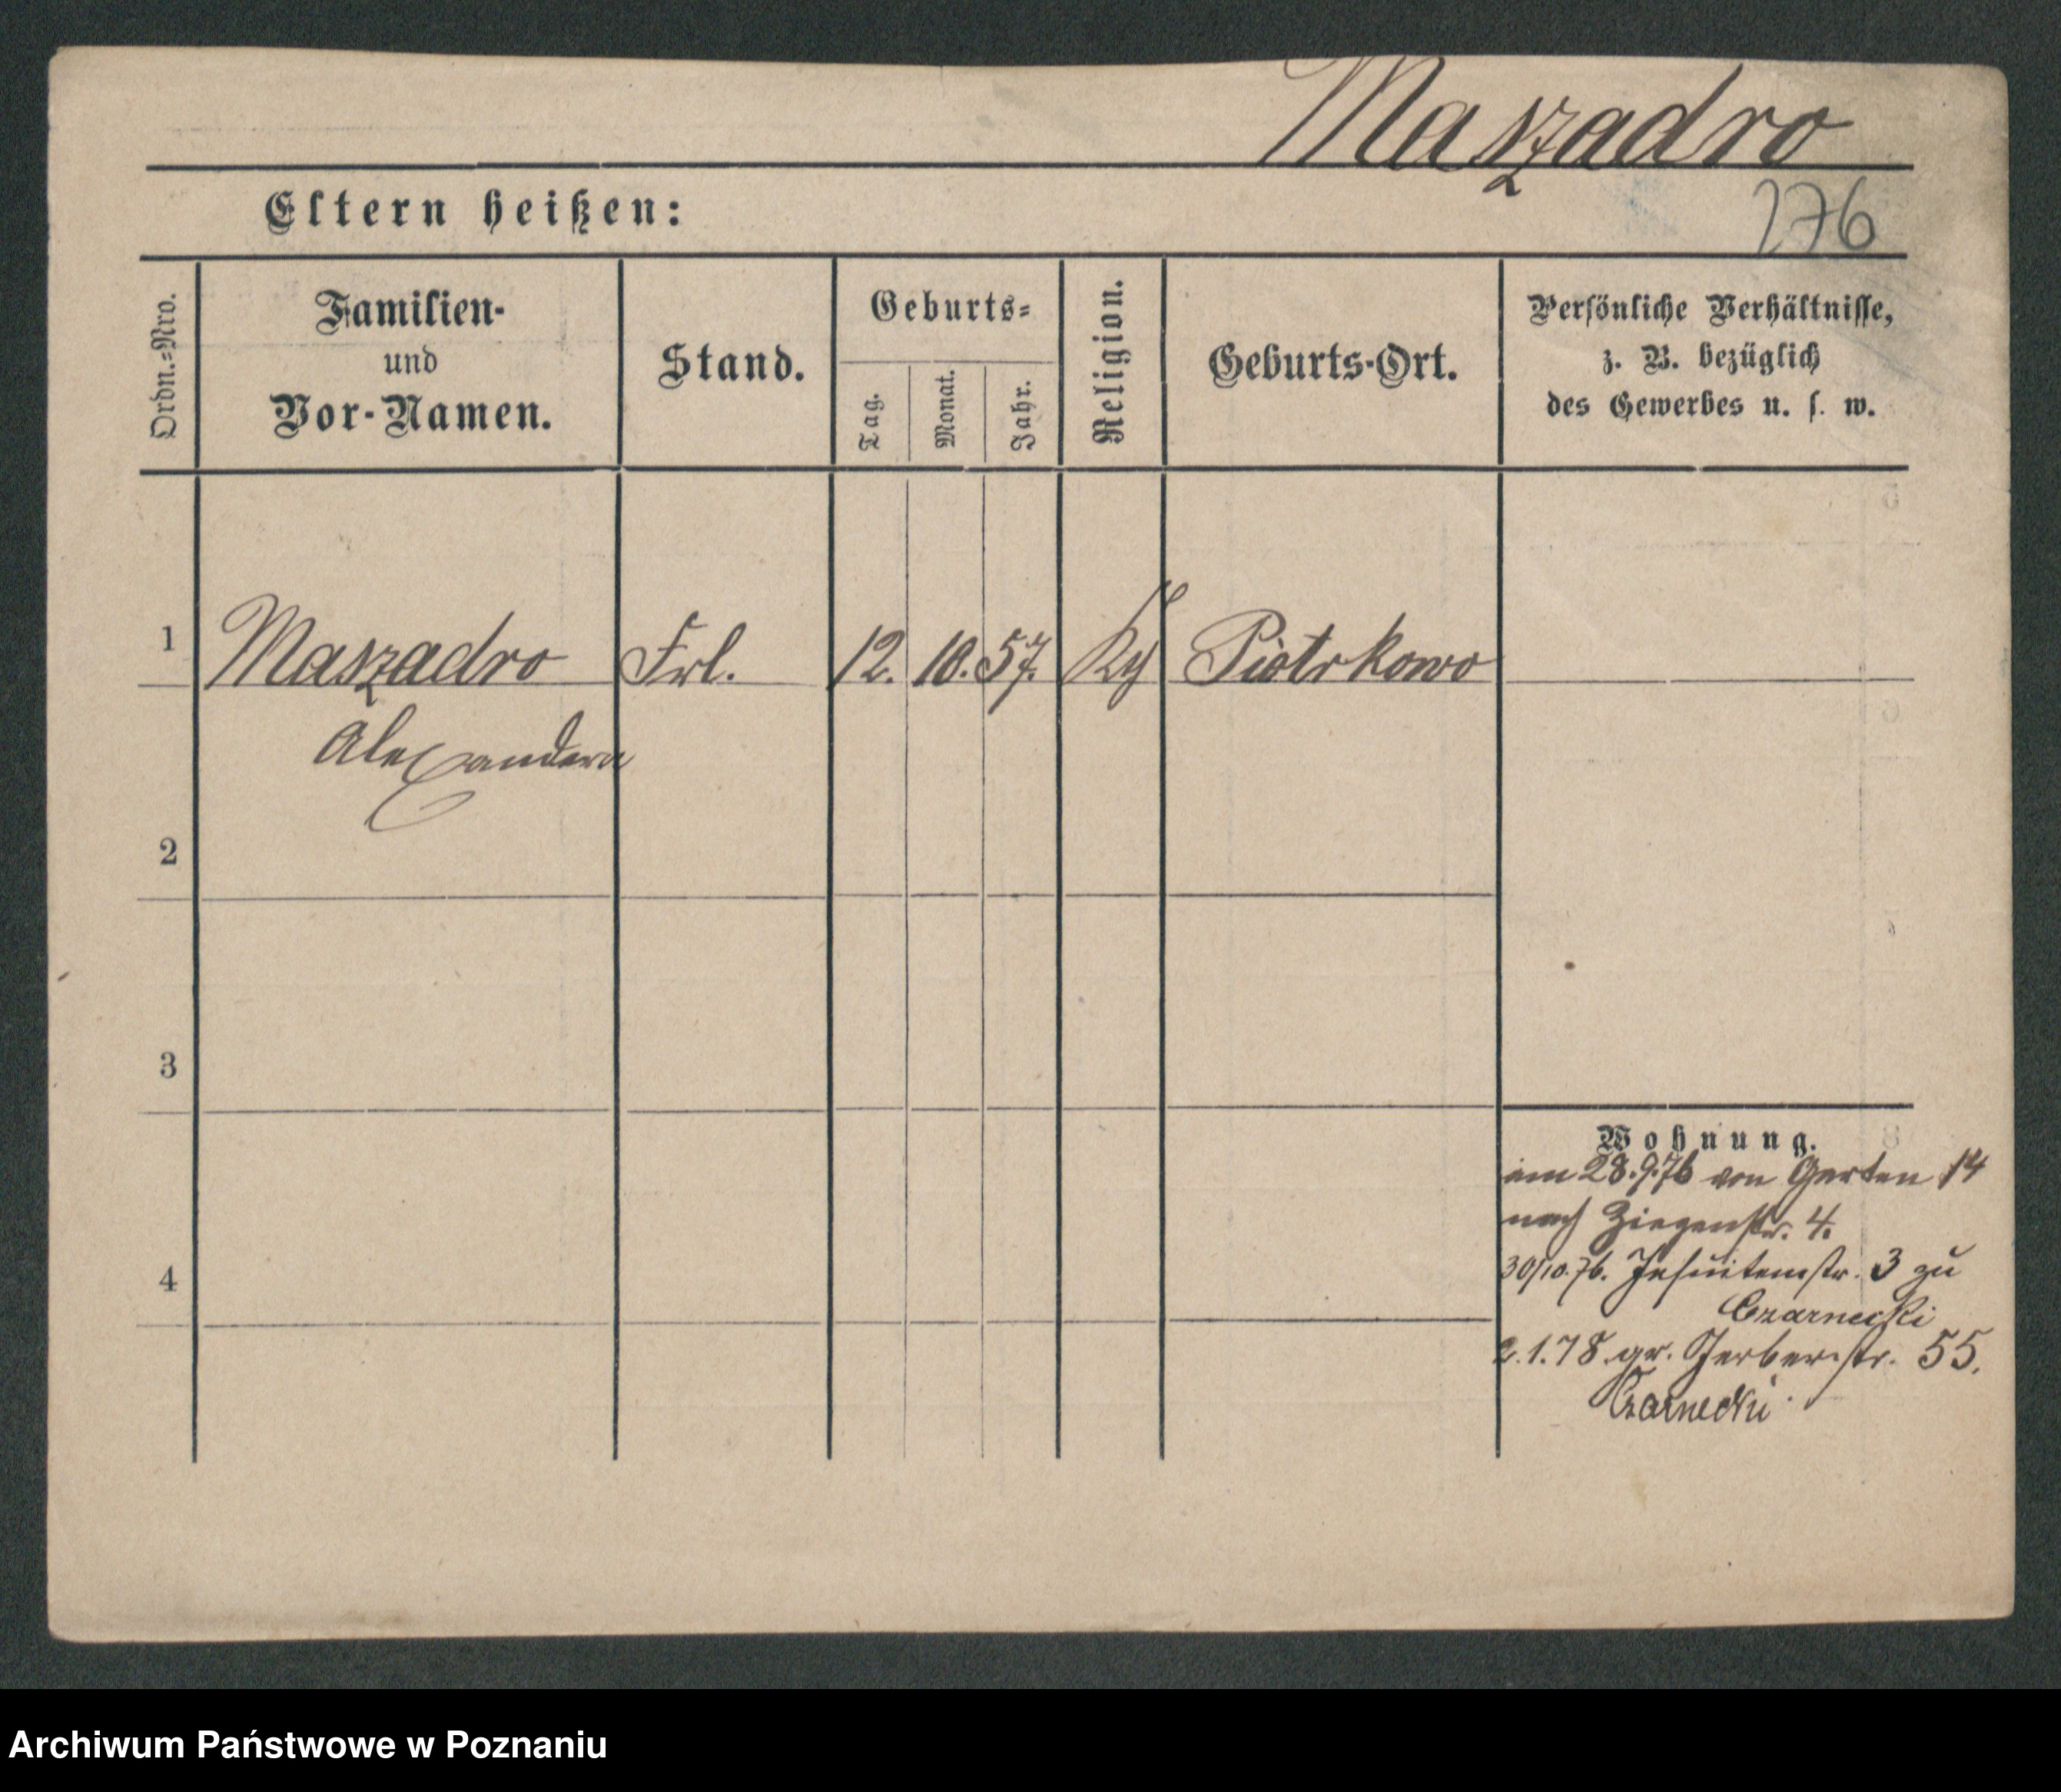 Maszadro
Eltern heißen:
276
Ordn.-Nro.
Familien-
und
Vor-Namen.
Stand.
Geburts-
Tag.
Monat.
Jahr.
Religion.
Geburts-Ort.
Persönliche Verhältnisse,
z. B. bezüglich
des Gewerbes u. s. w.
1 Maszadro Frl. 12. 10. 57. Piotrkowo
Alexandera
2
3
4
Wohnung.
am 28.9.76 von Garten 14
nach Ziegenstr. 4.
30/10.76. Jesuitenstr. 3 zu
Czarnecki
2.1.78. gr. Gerberstr. 55.
Czarnecki
Archiwum Państwowe w Poznaniu